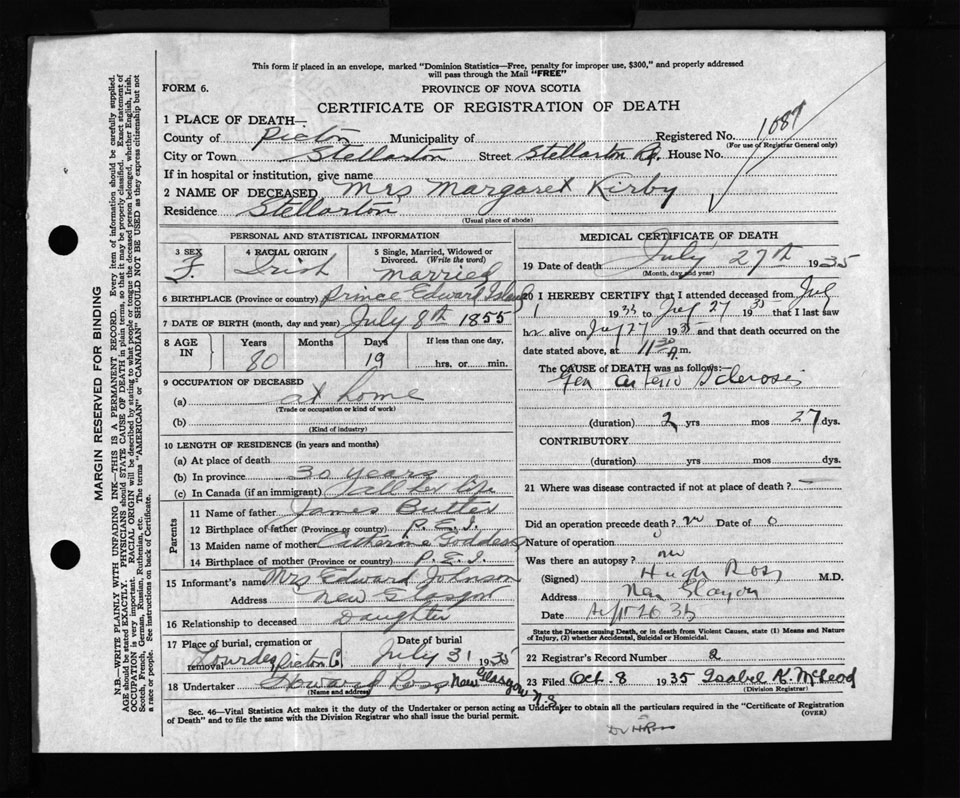 This form if placed in an envelope, marked "Dominion Statistics—Free, penalty for improper use, $300," and properly addressed
will pass through the Mail "FREE"
FORM 6.
PROVINCE OF NOVA SCOTIA
CERTIFICATE OF REGISTRATION OF DEATH
1087
1 PLACE OF DEATH—
County of Pictou Municipality of Registered No.
(For use of Registrar General only)
City or Town Stellarton Street Stellarton Rd. House No.
If in hospital or institution, give name
2 NAME OF DECEASED Mrs Margaret Kirby
Residence Stellarton
(Usual place of abode)
PERSONAL AND STATISTICAL INFORMATION
3 SEX F. 4 RACIAL ORIGIN Irish 5 Single, Married, Widowed or Divorced. (Write the word) married
6 BIRTHPLACE (Province or country) Prince Edward Island
7 DATE OF BIRTH (month, day and year) July 8th 1855
8 AGE IN Years 80 Months Days 19 If less than one day, hrs. or min.
9 OCCUPATION OF DECEASED
(a) at home
(Trade or occupation or kind of work)
(b)
(Kind of industry)
10 LENGTH OF RESIDENCE (in years and months)
(a) At place of death
(b) In province 30 years
(c) In Canada (if an immigrant) all her life
Parents
11 Name of father James Butler
12 Birthplace of father (Province or country) P.E.I.
13 Maiden name of mother Catherine
14 Birthplace of mother (Province or country) P.E.I.
15 Informant's name Mrs Edward Johnson
Address New Glasgow
16 Relationship to deceased Daughter
17 Place of burial, cremation or removal Lourdes Pictou Co. Date of burial July 31 1935
18 Undertaker Howard Ross New Glasgow N.S.
(Name and address)
MEDICAL CERTIFICATE OF DEATH
19 Date of death July 27th 1935
(Month, day and year)
20 I HEREBY CERTIFY that I attended deceased from July
1 1933 to July 27 1935 that I last saw
her alive on July 27 1935 and that death occurred on the
date stated above, at 11 30 A.m.
The CAUSE OF DEATH was as follows:—
Gen Arterio Sclerosis
(duration) 2 yrs mos 27 dys.
CONTRIBUTORY
(duration) yrs mos dys.
21 Where was disease contracted if not at place of death?
Did an operation precede death? no Date of 0
Nature of operation 0
Was there an autopsy? no
(Signed) Hugh Ross M.D.
Address New Glasgow
Date 26 35
State the Disease causing Death, or in death from Violent Causes, state (1) Means and Nature of
Injury, (2) whether Accidental, Suicidal or Homicidal.
22 Registrar's Record Number 2
23 Filed Oct. 8 1935 Isabel K. McLeod
(Division Registrar)
Sec. 46—Vital Statistics Act makes it the duty of the Undertaker or person acting as Undertaker to obtain all the particulars required in the "Certificate of Registration
of Death" and to file the same with the Division Registrar who shall issue the burial permit.
(OVER)
Dr H Ross
MARGIN RESERVED FOR BINDING
N.B. WRITE PLAINLY WITH UNFADING INK—THIS IS A PERMANENT RECORD. Every item of information should be carefully supplied.
AGE should be stated EXACTLY. PHYSICIANS should STATE CAUSE OF DEATH in plain terms, so that it may be properly classified. Exact statement of
OCCUPATION is very important. RACIAL ORIGIN will be described by stating to what people or tongue the deceased person belonged, whether English, Irish,
Scotch, French, German, Russian, Ruthenian, etc. The terms "AMERICAN" or "CANADIAN" SHOULD NOT BE USED as they express citizenship but not
a race or people. See instructions on back of Certificate.